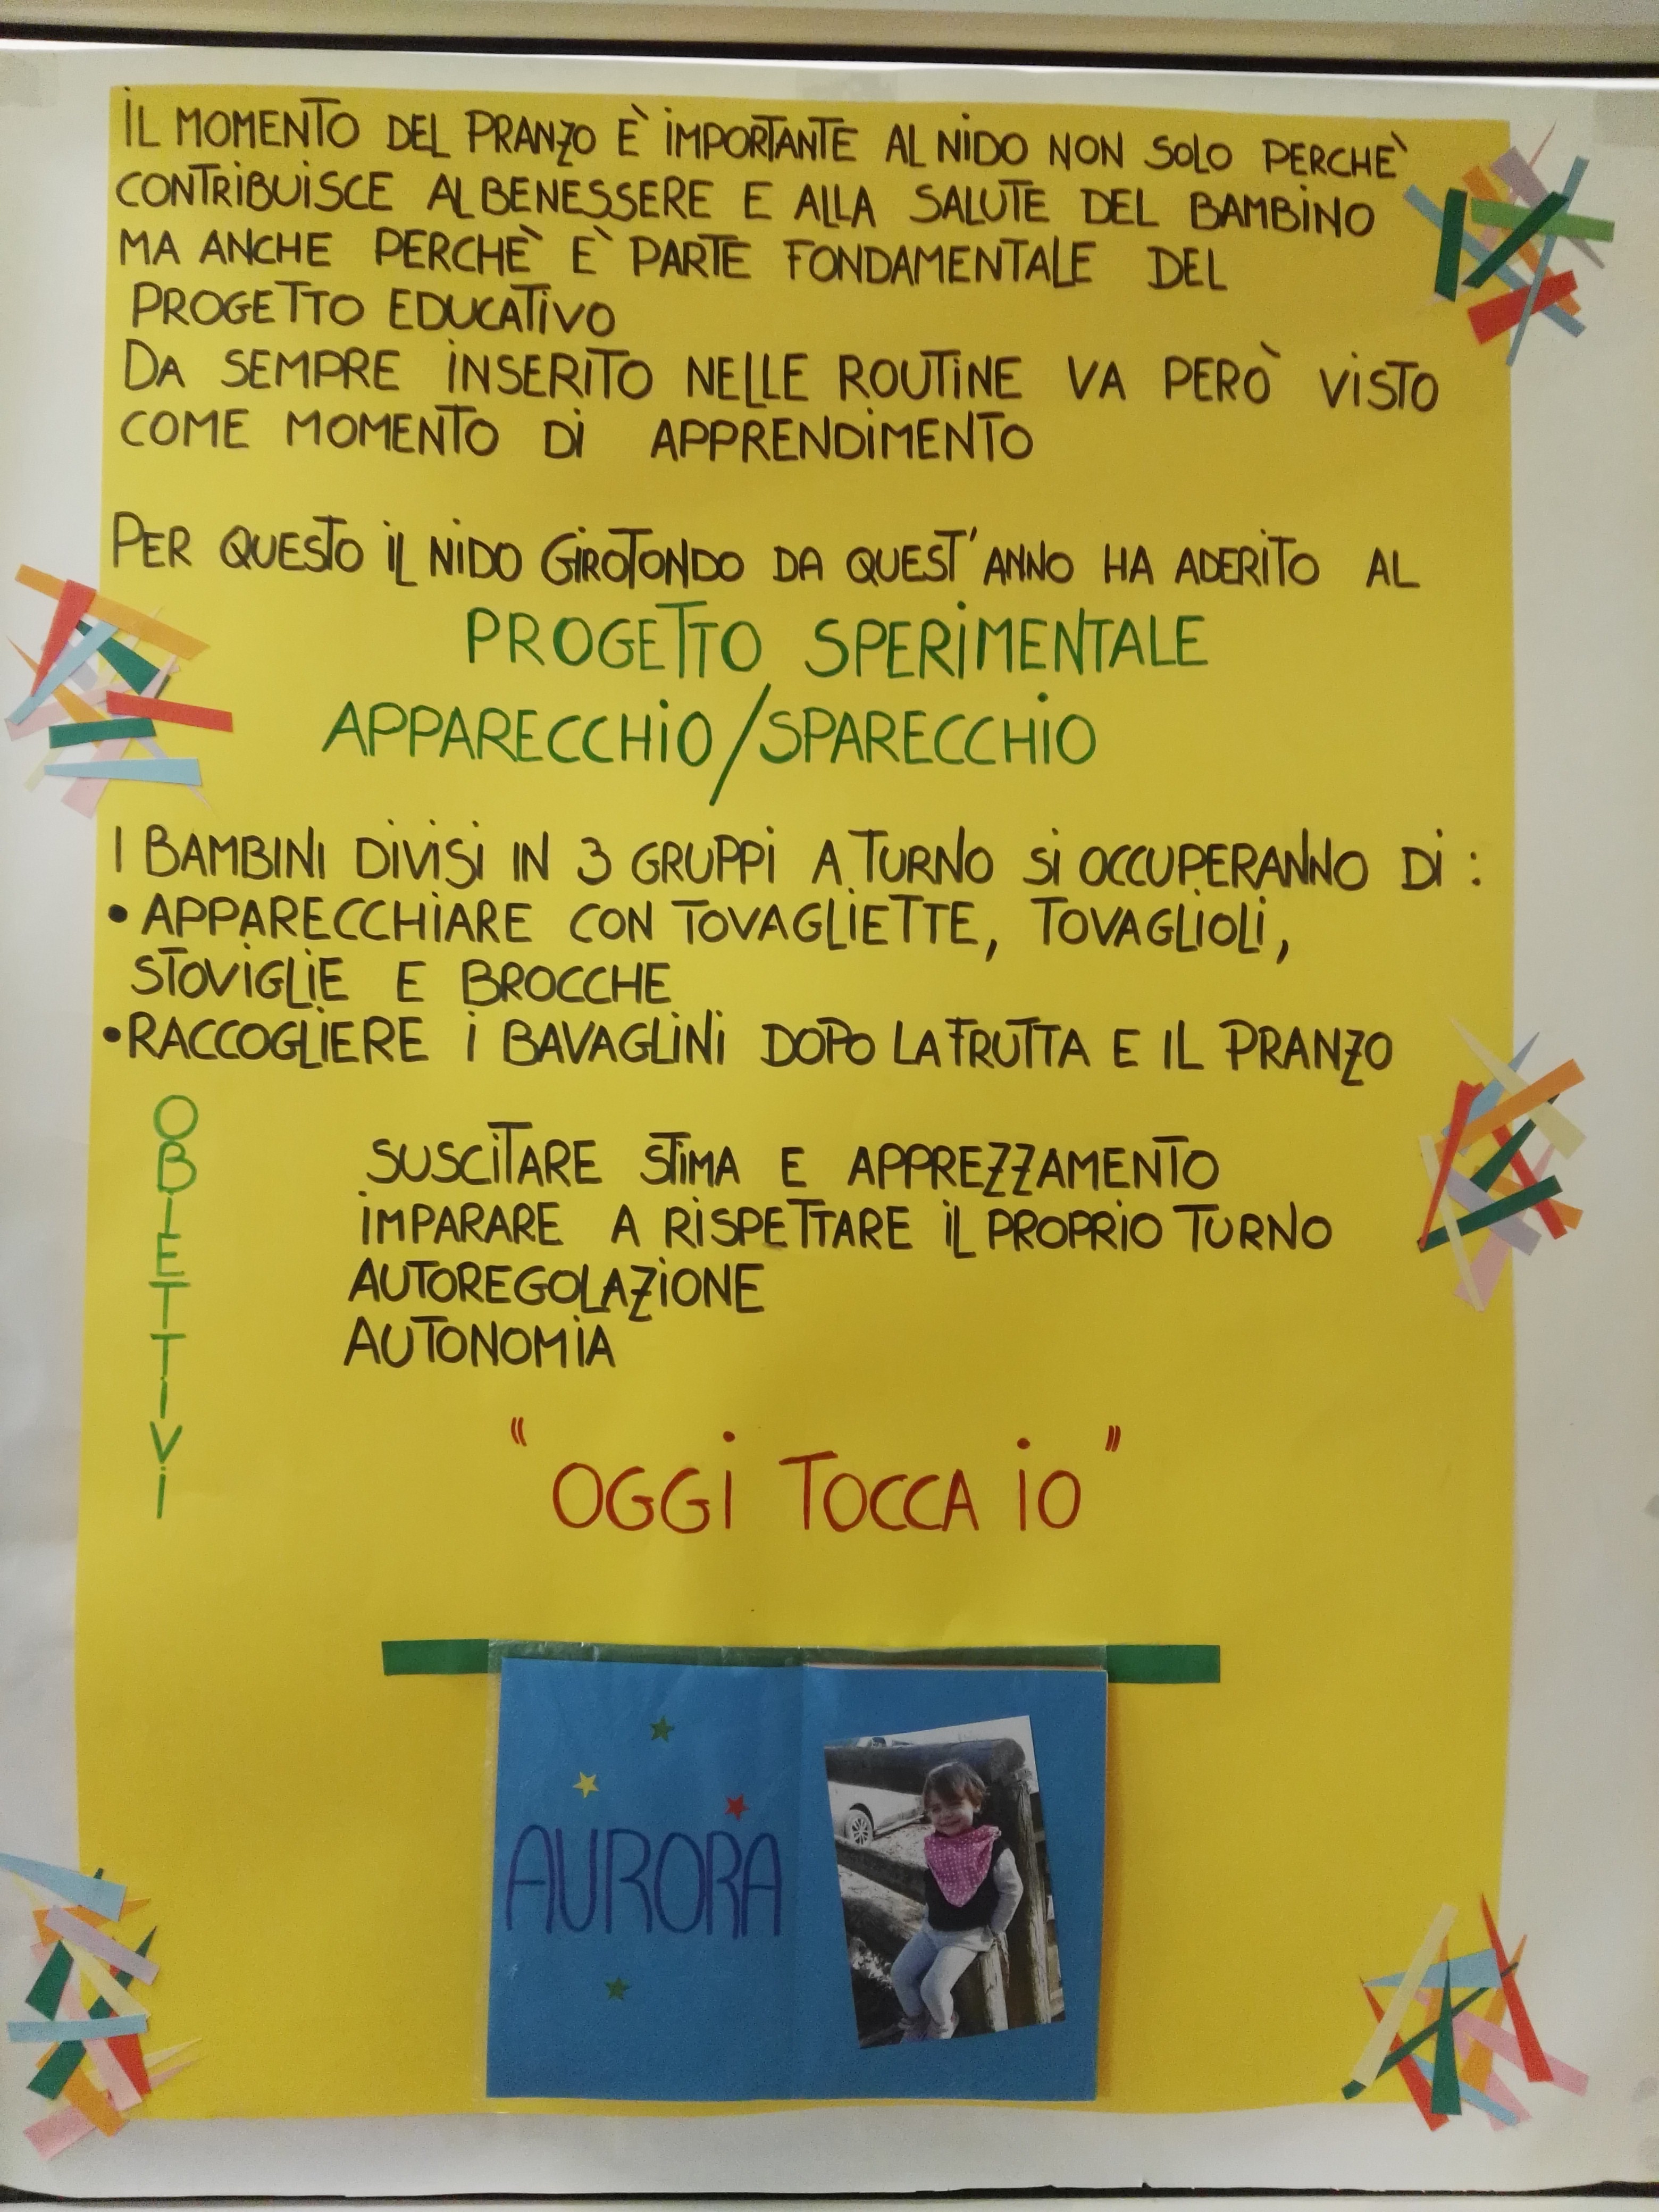 IL MOMENTO DEL PRANZO È IMPORTANTE AL NIDO NON SOLO PERCHÈ
CONTRIBUISCE AL BENESSERE E ALLA SALUTE DEL BAMBINO
MA ANCHE PERCHÈ È PARTE FONDAMENTALE DEL
PROGETTO EDUCATIVO
DA SEMPRE INSERITO NELLE ROUTINE VA PERÒ VISTO
COME MOMENTO DI APPRENDIMENTO
PER QUESTO IL NIDO GIROTONDO DA QUEST'ANNO HA ADERITO AL
PROGETTO SPERIMENTALE
APPARECCHIO/SPARECCHIO
I BAMBINI DIVISI IN 3 GRUPPI A TURNO SI OCCUPERANNO DI :
• APPARECCHIARE CON TOVAGLIETTE, TOVAGLIOLI,
STOVIGLIE E BROCCHE
• RACCOGLIERE I BAVAGLINI DOPO LA FRUTTA E IL PRANZO
OBIETTIVI
SUSCITARE STIMA E APPREZZAMENTO
IMPARARE A RISPETTARE IL PROPRIO TURNO
AUTOREGOLAZIONE
AUTONOMIA
"OGGI TOCCA IO"
AURORA